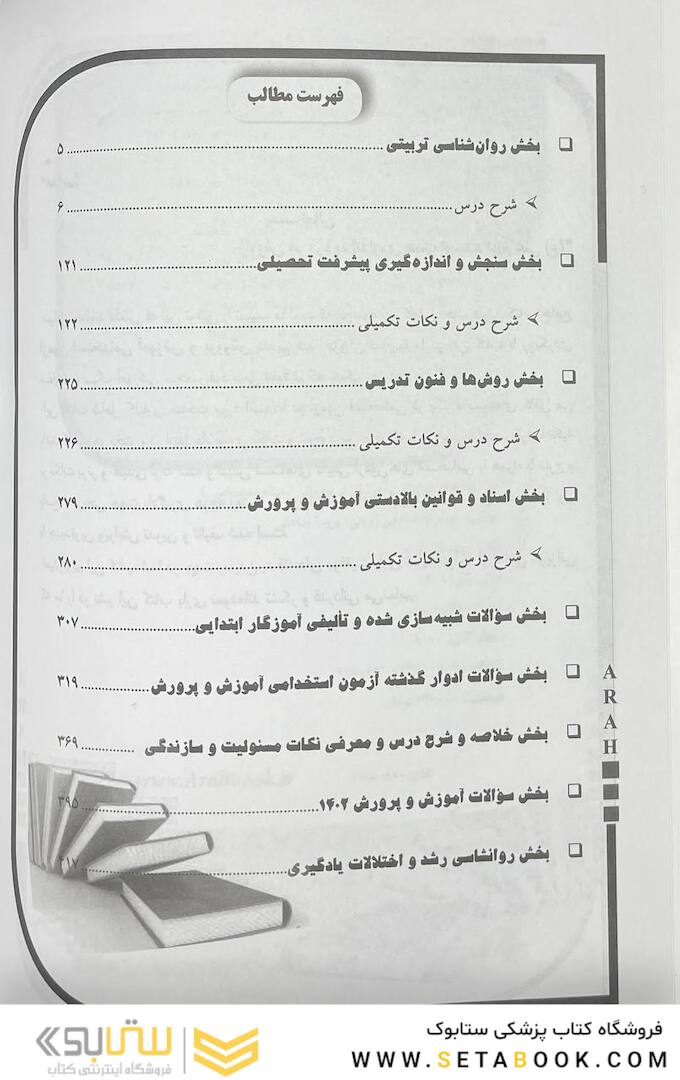 فهرست مطالب
❑ بخش روان‌شناسی تربیتی ........ ۵
➢ شرح درس ........ ۶
❑ بخش سنجش و اندازه‌گیری پیشرفت تحصیلی ........ ۱۲۱
➢ شرح درس و نکات تکمیلی ........ ۱۲۲
❑ بخش روش‌ها و فنون تدریس ........ ۲۲۵
➢ شرح درس و نکات تکمیلی ........ ۲۲۶
❑ بخش اسناد و قوانین بالادستی آموزش و پرورش ........ ۲۷۹
➢ شرح درس و نکات تکمیلی ........ ۲۸۰
❑ بخش سؤالات شبیه‌سازی شده و تألیفی آموزگار ابتدایی ........ ۳۰۷
❑ بخش سؤالات ادوار گذشته آزمون استخدامی آموزش و پرورش ........ ۳۱۹
❑ بخش خلاصه و شرح درس و معرفی نکات مسئولیت و سازندگی ........ ۳۶۹
❑ بخش سؤالات آموزش و پرورش ۱۴۰۲ ........ ۳۹۵
❑ بخش روانشاسی رشد و اختلالات یادگیری ........ ۴۱۷
ARAH
فروشگاه کتاب پزشکی ستابوک
WWW.SETABOOK.COM
ستابوک
فروشگاه اینترنتی کتاب